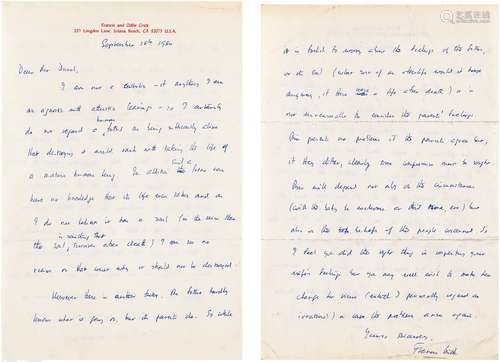 Francis and Odile Crick
337 Longden Lane, Solana Beach, CA 92075 U.S.A.
September 18th 1980
Dear Mr
I am not a Catholic - if anything I am
an agnostic with atheistic leanings - so I certainly
do not regard a fetus as being sufficiently alive
human
that destroying it would rank with taking the life of
a mature human being. In addition the fetus can
such a
have no knowledge that its life even exists and as
I do not believe it has a soul (in the sense that
is something that
the soul, survives after death) I can see no
reason on that score why it should not be destroyed.
However there is another factor. The fetus hardly
knows what is going on, but the parents do. So while
it is foolish to worry about the feelings of the fetus,
or its soul (what sort of an afterlife would it have
anyway, if there were a life after death) it is
not unreasonable to consider the parents' feelings.
One presents no problem if the parents agree but,
if they differ, clearly some compromise must be sought.
This will depend not only on the circumstances
(will the baby be or not, etc) but
also on the beliefs of the people concerned. So
I feel you did the right thing in respecting your
wife's feelings but you may well wish to make her
change her views (which I personally regard as
irrational) in case the problem arises again.
Yours sincerely,
Francis Crick